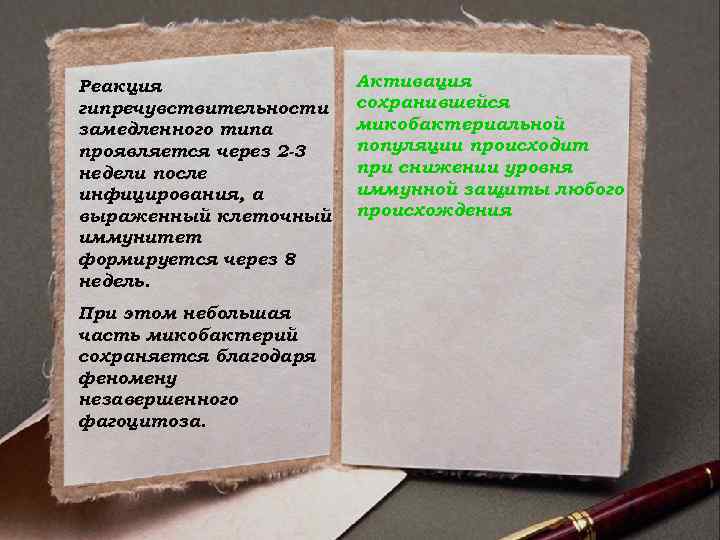 Реакция
гипречувствительности
замедленного типа
проявляется через 2-3
недели после
инфицирования, а
выраженный клеточный
иммунитет
формируется через 8
недель.
При этом небольшая
часть микобактерий
сохраняется благодаря
феномену
незавершенного
фагоцитоза.
Активация
сохранившейся
микобактериальной
популяции происходит
при снижении уровня
иммунной защиты любого
происхождения